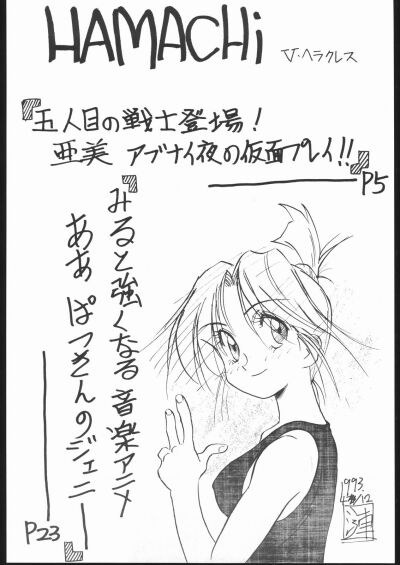 HAMACHi
V・ヘラクレス
『五人目の戦士登場!
亜美 アブナイ夜の仮面プレイ!!』
P5
『みると強くなる音楽アニメ
ああ ぱっきんのジェニー』
P23
1993